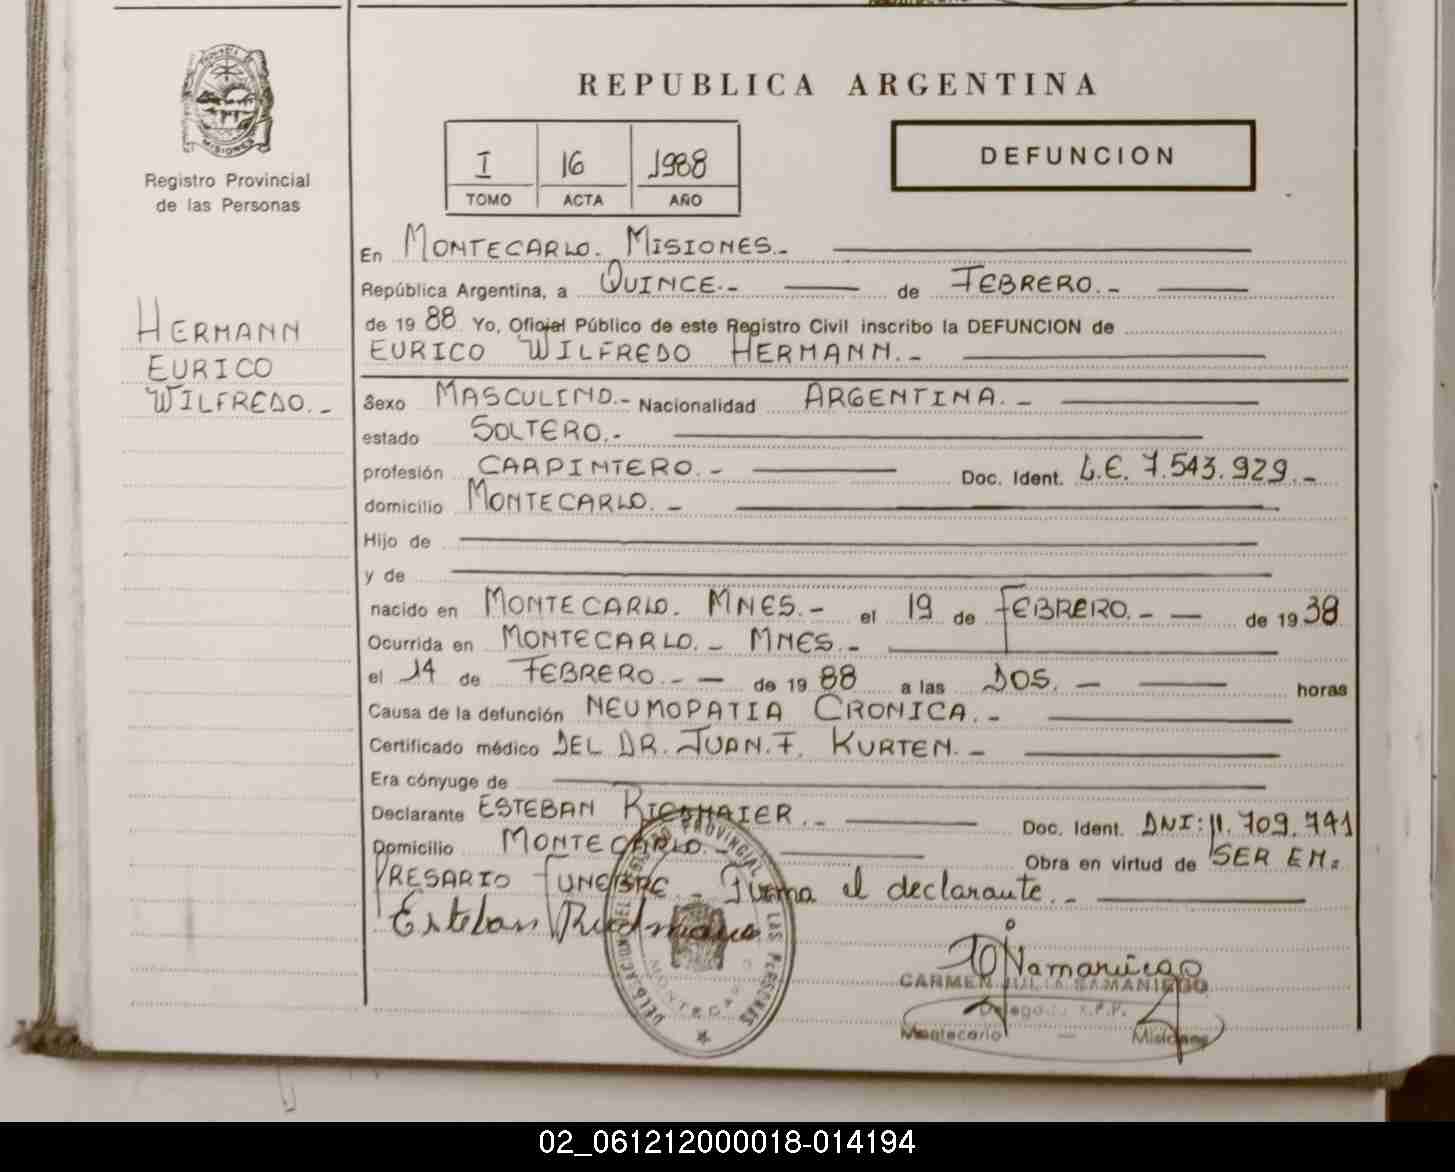 REPUBLICA ARGENTINA
MISIONES
Registro Provincial
de las Personas
I 16 1988
TOMO ACTA AÑO
DEFUNCION
HERMANN
EURICO
WILFREDO.-
En MONTECARLO. MISIONES.-
República Argentina, a QUINCE.- de FEBRERO.-
de 19 88 Yo, Oficial Público de este Registro Civil inscribo la DEFUNCION de
EURICO WILFREDO HERMANN.-
Sexo MASCULINO.- Nacionalidad ARGENTINA.-
estado SOLTERO.-
profesión CARPINTERO.- Doc. Ident. L.E. 7.543.929.-
domicilio MONTECARLO.-
Hijo de
y de
nacido en MONTECARLO. MNES.- el 19 de FEBRERO.- de 19 38
Ocurrida en MONTECARLO.- MNES.-
el 14 de FEBRERO.- de 19 88 a las DOS.- horas
Causa de la defunción NEUMOPATIA CRONICA.-
Certificado médico DEL DR. JUAN.F. KURTEN.-
Era cónyuge de
Declarante ESTEBAN RIEDMAIER.- Doc. Ident. DNI: 11.709.741
Domicilio MONTECARLO.- Obra en virtud de SER EM=
PRESARIO FUNEBRE.- Firma el declarante.-
Esteban
DELEGACION DEL REGISTRO PROVINCIAL DE LAS PERSONAS
MONTECARLO
CARMEN JULIA SAMANIEGO
Delegada R.P.P.
Montecarlo — Misiones
02_061212000018-014194